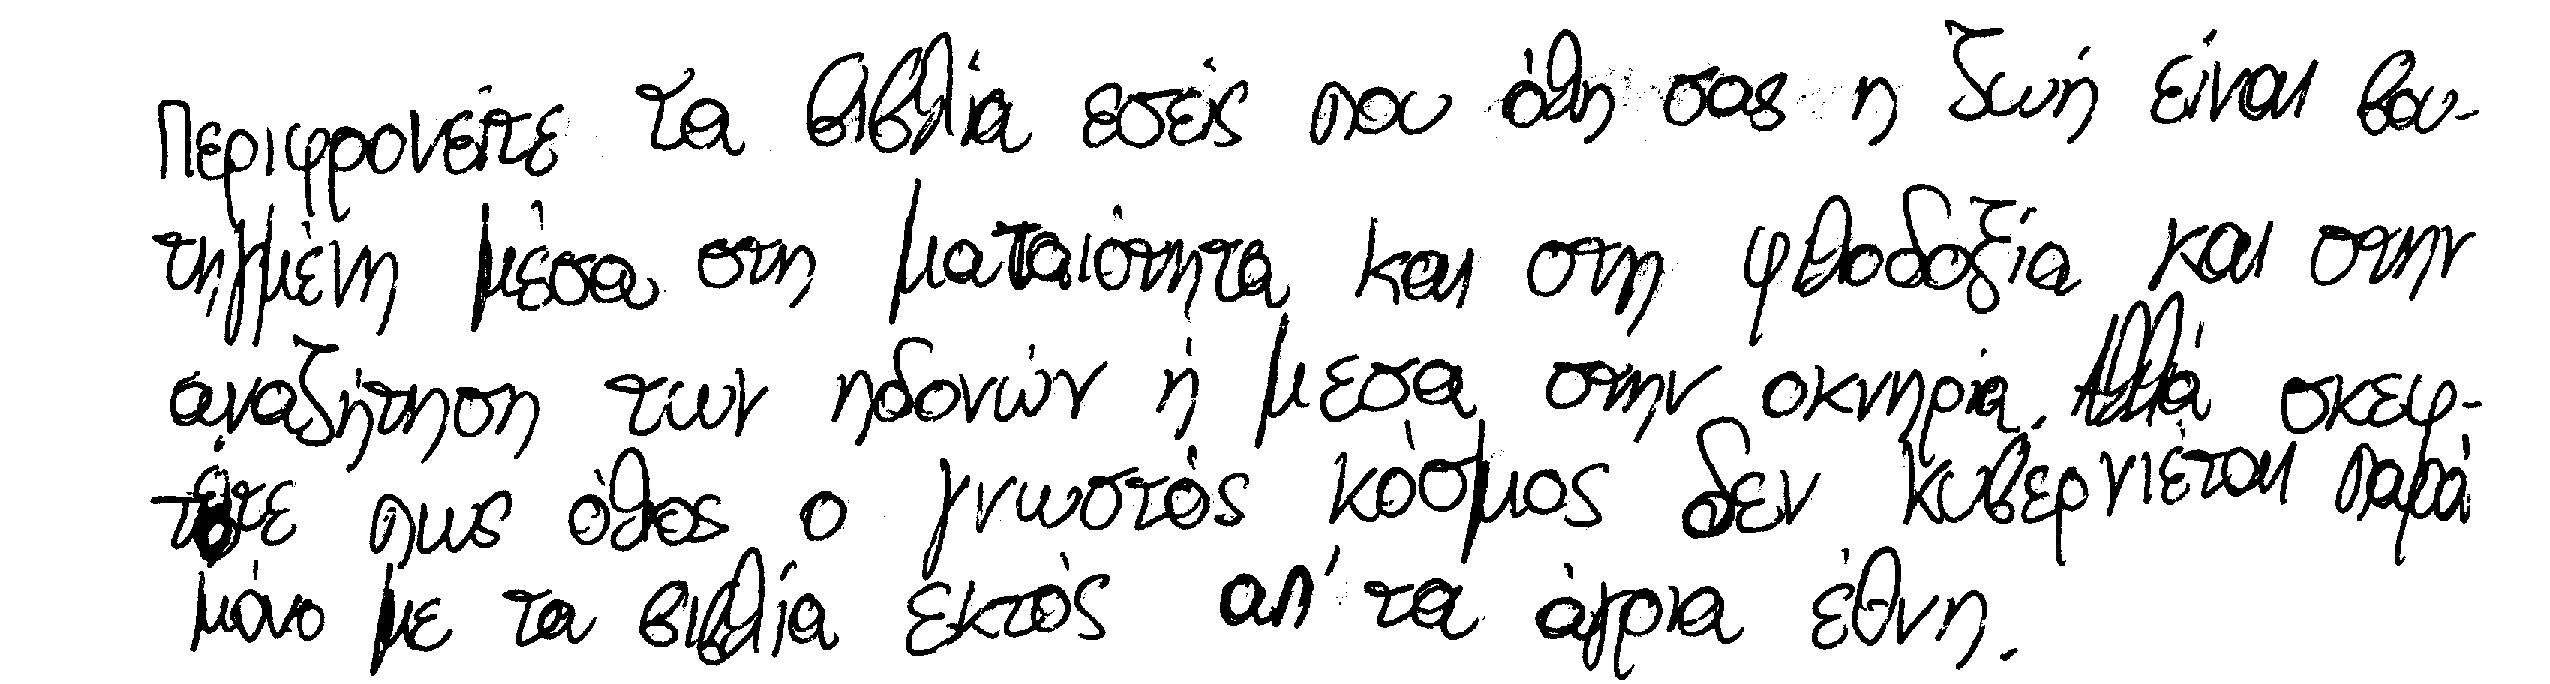 Περιφρονείτε τα βιβλία εσείς που όλη σας η ζωή είναι βου-
τηγμένη μέσα στη ματαιότητα και στη φιλοδοξία και στην
αναζήτηση των ηδονών ή μεσα στην οκνηρία. Αλλά σκεφ-
τείτε πως όλος ο γνωστός κόσμος δεν κυβερνιέται παρά
μόνο με τα βιβλία εκτός απ' τα άγρια έθνη.